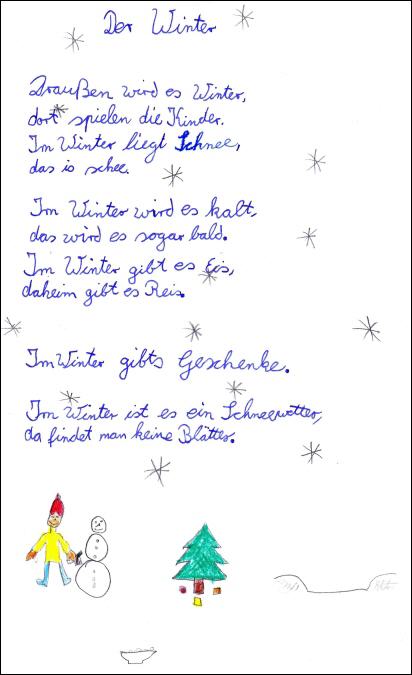 Der Winter
Draußen wird es Winter,
dort spielen die Kinder.
Im Winter liegt Schnee,
das is schee.
Im Winter wird es kalt,
das wird es sogar bald.
Im Winter gibt es Eis,
daheim gibt es Reis.
Im Winter gibts Geschenke.
Im Winter ist es ein Schneewetter,
da findet man keine Blätter.